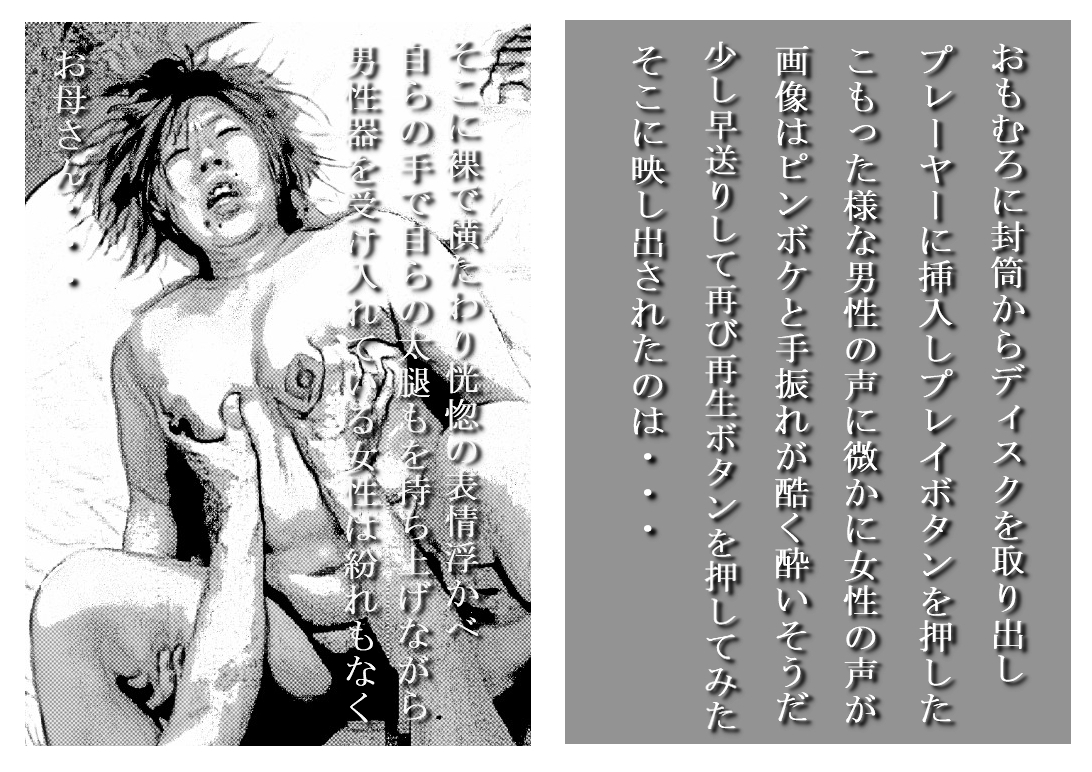 おもむろに封筒からディスクを取り出し
プレーヤーに挿入しプレイボタンを押した
こもった様な男性の声に微かに女性の声が
画像はピンボケと手振れが酷く酔いそうだ
少し早送りして再び再生ボタンを押してみた
そこに映し出されたのは・・・
そこに裸で横たわり恍惚の表情浮かべ
自らの手で自らの太腿もを持ち上げながら
男性器を受け入れている女性は紛れもなく
お母さん・・・